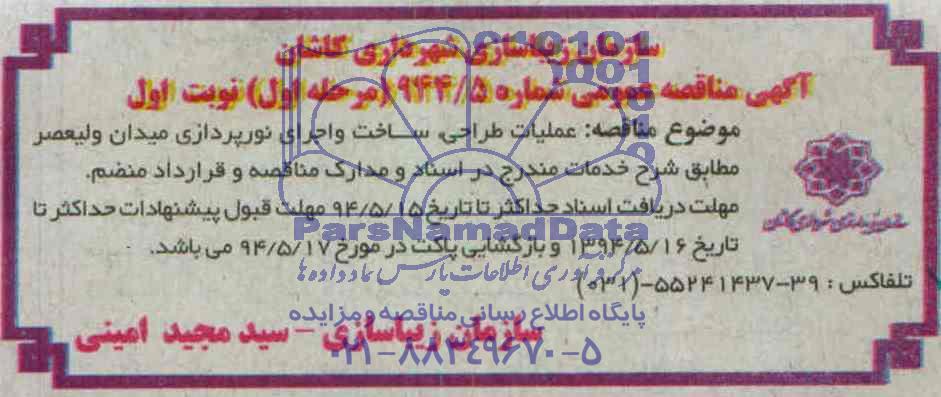 سازمان زیباسازی شهرداری کاشان
آگهی مناقصه عمومی شماره ۹۴۴/۵ (مرحله اول) نوبت اول
موضوع مناقصه: عملیات طراحی، ساخت واجرای نورپردازی میدان ولیعصر
مطابق شرح خدمات مندرج در اسناد و مدارک مناقصه و قرارداد منضم.
مهلت دریافت اسناد حداکثر تا تاریخ ۹۴/۵/۱۵ مهلت قبول پیشنهادات حداکثر تا
تاریخ ۱۳۹۴/۵/۱۶ و بازگشایی پاکت در مورخ ۹۴/۵/۱۷ می باشد.
تلفاکس : ۳۹-۵۵۲۴۱۴۳۷-(۰۳۱)
سازمان زیباسازی – سید مجید امینی
ParsNamadData
مرکز فرآوری اطلاعات پارس نماد داده ها
پایگاه اطلاع رسانی مناقصه و مزایده
۰۲۱-۸۸۳۴۹۶۷۰-۵